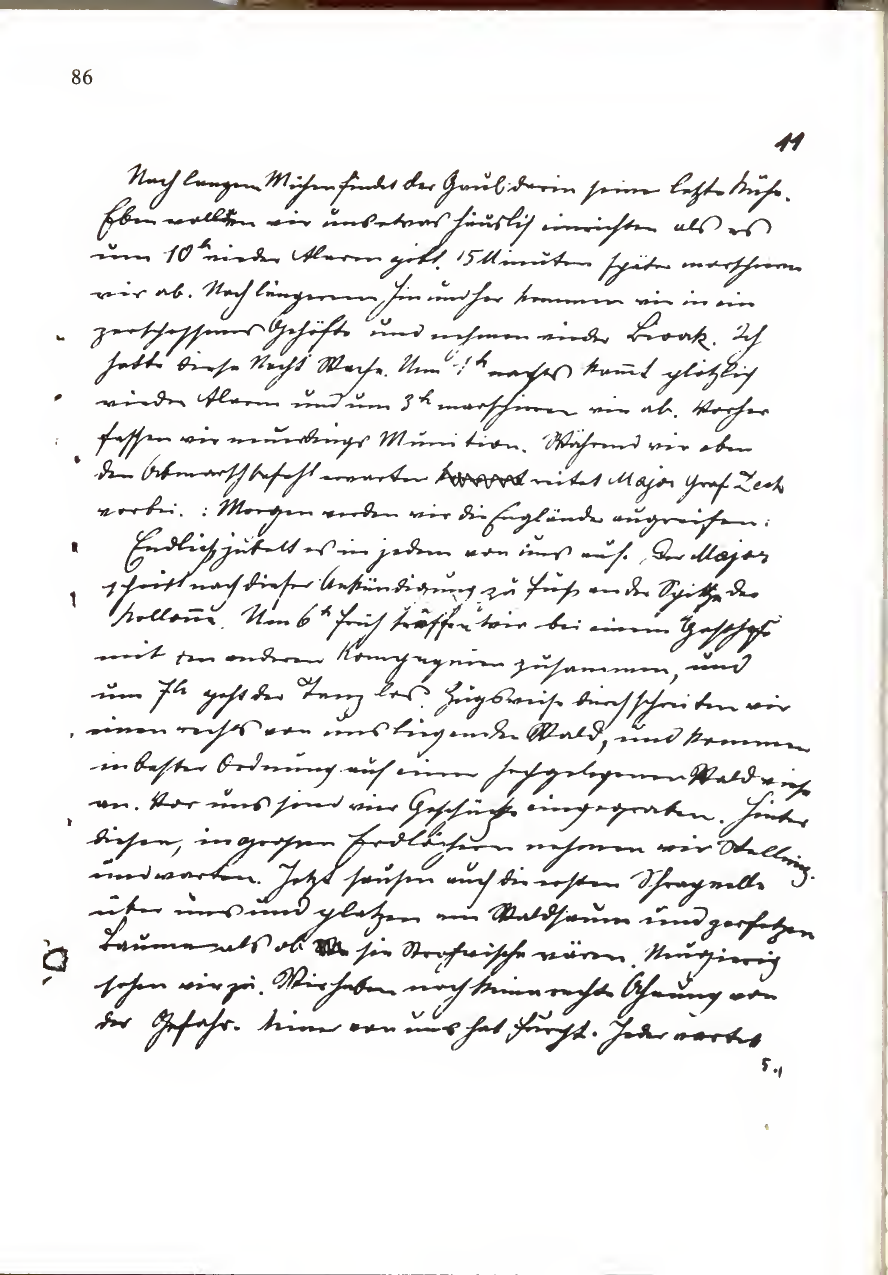 86
11
Nach langen Mühen findet der Gaul darin seine letzte Ruhe.
Eben wollten wir uns etwas häuslich einrichten als es
um 10h wieder Alarm gibt. 15 Minuten später marschieren
wir ab. Nach längerem hin und her kommen wir in ein
zerschossenes Gehöfte und nehmen wieder Biwak. Ich
hatte diese Nacht Wache. Um 1h nachts kommt plötzlich
wieder Alarm und um 3h marschieren wir ab. Vorher
fassen wir neuerdings Munition. Während wir eben
den Abmarschbefehl erwarten reitet Major Graf Zech
vorbei. : Morgen werden wir die Engländer angreifen :
Endlich jubelt es in jedem von uns auf. Der Major
schreitet nach dieser Ankündigung zu Fuß an der Spitze der
Kollonne. Um 6h früh treffen wir bei einem
mit den anderen Kompagnien zusammen, und
um 7h geht der Tanz los. Zugsweise durchschreiten wir
einen rechts von uns liegenden Wald, und kommen
in bester Ordnung auf einer hochgelegenen Waldwiese
an. Vor uns sind vier Geschütze eingegraben. Hinter
diesen, in großen Erdlöchern nehmen wir Stellung
und warten. Jetzt sausen auch die ersten Schrapnells
über uns und platzen am Waldsaum und zerfetzen
Bäume als ob sie Strohwische wären. Neugierig
sehen wir zu. Wir haben noch keine rechte Ahnung von
der Gefahr. Keiner von uns hat Furcht. Jeder wartet